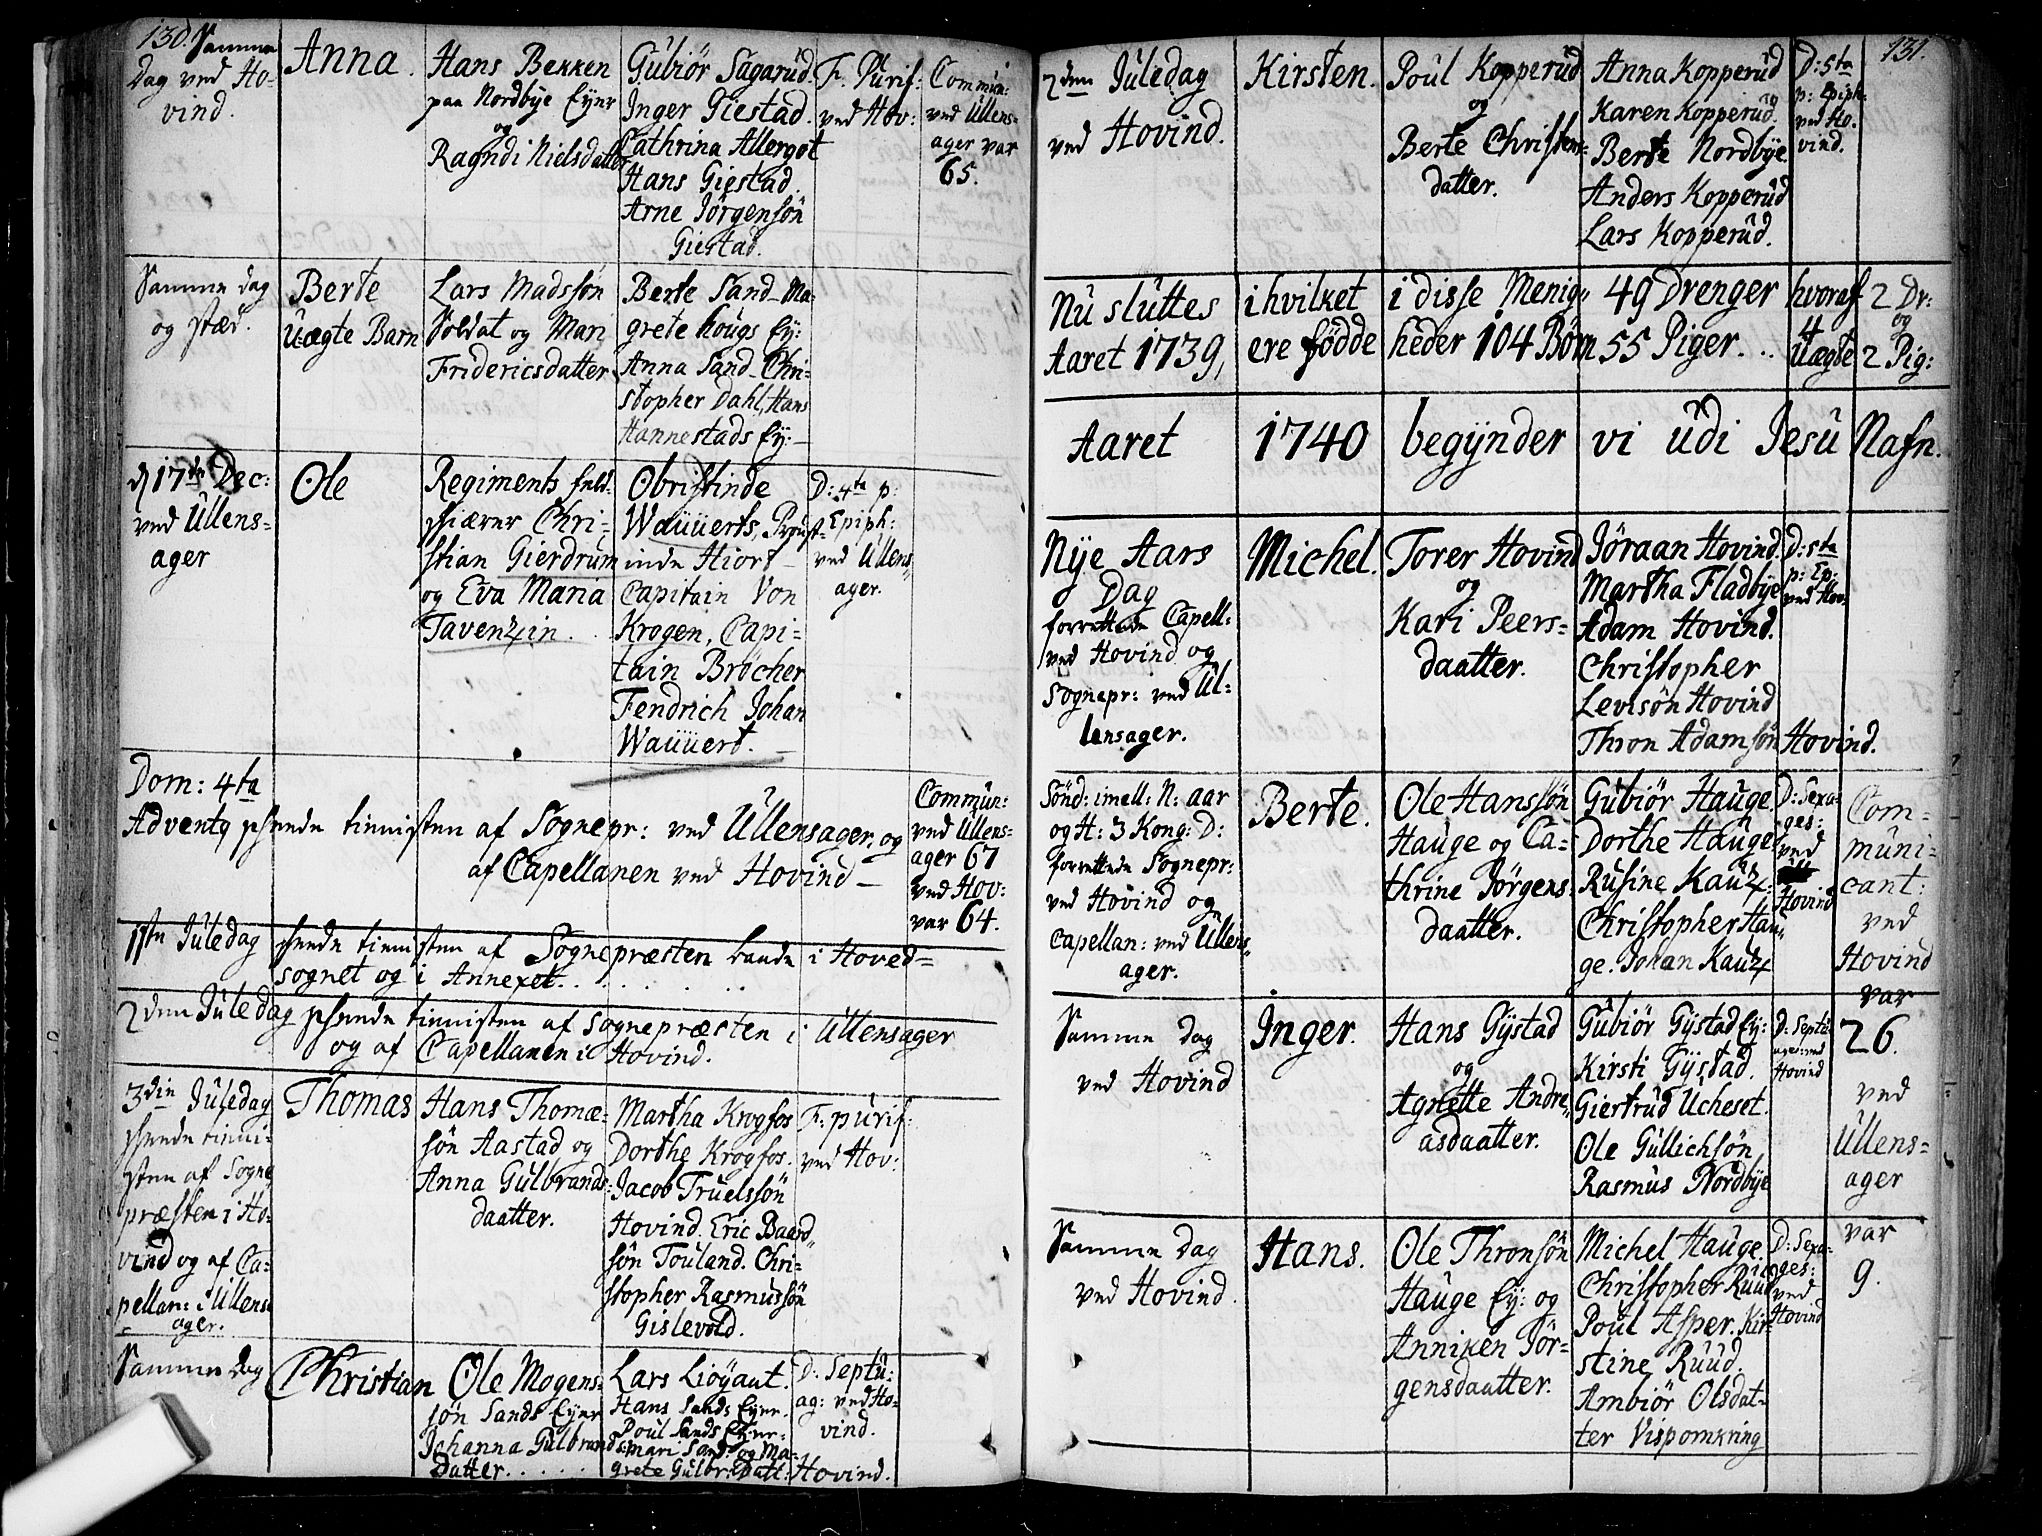 130.
Samme
Dag ved Ho-
vind.
Anna.
Hans Bekken
paa Nordbye Eyer
og
Ragndi Nielsdatter
Gubiör Sagarud.
Inger Giestad.
Cathrina Allergot
Hans Giestad.
Arne Jörgensön
Giestad.
F. Purif:
ved Hov:
Commun:
ved Ullens-
ager var
65.
Samme dag
og stæd.
Berte
Uægte Barn
Lars Madssön
Soldat og Mari
Fridericsdatter
Berte Sand Ma-
grete hougs Ey:
Anna Sand Chri-
stopher Dahl, Hans
Hannestads Ey:
d 17de Dec:
ved Ullens-
ager
Ole
Regiments feld-
skiærer Chri-
stian Gierdrum
og Eva Maria
Taventzin.
Obristinde
Wauuerts, Proust-
inde Hiort
Capitain Von
Krogen, Capi-
tain Bröcher
Fendrich Johan
Wauuert.
D: 4ta p:
Epiph:
ved Ullens-
ager.
Dom: 4ta
Advents skeede tienisten af Sognepr: ved Ullensager, og
af Capellanen ved Hovind
Commun:
ved Ullens-
ager 67
ved Hov:
var 64.
1ste Juledag skeede tienisten af Sognepræsten baade i Hoved-
sognet og i Annexet.
2den Juledag skeede tienisten af Sognepræsten i Ullensager
og af Capellanen i Hovind.
3die Juledag
skeede tieni-
sten af Sogne
præsten i Ho-
vind og af Ca-
pellan: i Ullens-
ager.
Thomas
Hans Thomæ-
sön Aastad og
Anna Gulbrands-
daatter.
Martha Krogfos
Dorthe Krogfos.
Jacob Truelssön
Hovind. Eric Baard-
sön Touland. Chri-
stopher Rasmussön
Gislevold.
F: purif:
ved Hov:
Samme Dag
Christian
Ole Mogens-
sön Sands Eyer
Johanna Gulbrands
datter.
Lars Liöyaut.
Hans Sands Eyer.
Poul Sands Eyer.
Mari Sand og Ma-
grete Gulbr: Datt:
D: Septu-
ag: ved Ho-
vind.
Hovind.
131.
2den Juledag
ved Hovind.
Kirsten.
Poul Kopperud
og
Berte Christens-
datter.
Anna Kopperud
Karen Kopperud.
Berte Nordbye
Anders Kopperud
Lars Kopperud.
D: 5ta
p: Epiph:
ved Ho-
vind.
Nu sluttes i hvilket i disse Menig- 49 Drenger hvoraf 2 Dr:
og
Aaret 1739, ere fødde heder 104 Børn 55 Piger. .. 4 Uægte 2 Pig:
Aaret 1740 begynder vi udi Jesu Nafn.
Nye Aars
Dag
forrettede Capell:
ved Hovind og
Sognepr: ved Ul-
lensager.
Michel.
Torer Hovind
og
Kari Peers-
daatter.
Jöraan Hovind.
Martha Fladbye
Adam Hovind.
Christopher
Levisön Hovind
Thron Adamsön Hovind.
D: 5ta
p: Ep:
ved Hov:
Sönd: imell: N: aar
og H: 3 Kong: D:
forrettede Sognepr:
ved Hovind og
Capellan: ved Ullens-
ager.
Berte.
Ole Hanssön
Hauge og Ca-
thrine Jörgens-
daatter.
Gubiör Hauge
Dorthe Hauge
Rusine Kautz:
Christopher Hau-
ge. Johan Kautz
D: Sexa-
ges:
ved
Hovind
Com-
muni-
cant:
ved
Hovind
var
26.
ved
Ullens-
ager
var
9.
Samme Dag
ved Hovind
Inger.
Hans Gystad
og
Agnette Andre-
asdaatter.
Gubiör Gystad Ey:
Kirsti Gystad.
Giestrud Ucheset.
Ole Gullichsön
Rasmus Nordbye
D: Septu-
ages: ved
Hovind
Samme Dag
ved Hovind.
Hans.
Ole Thronsön
Hauge Ey: og
Anniken Jör-
gensdaatter.
Michel Hauge.
Christopher Ruud
Poul Asper. Kir-
stine Ruud.
Ambiör Olsdat-
ter Vispomkring
D: Sexa-
ges:
ved
Hovind